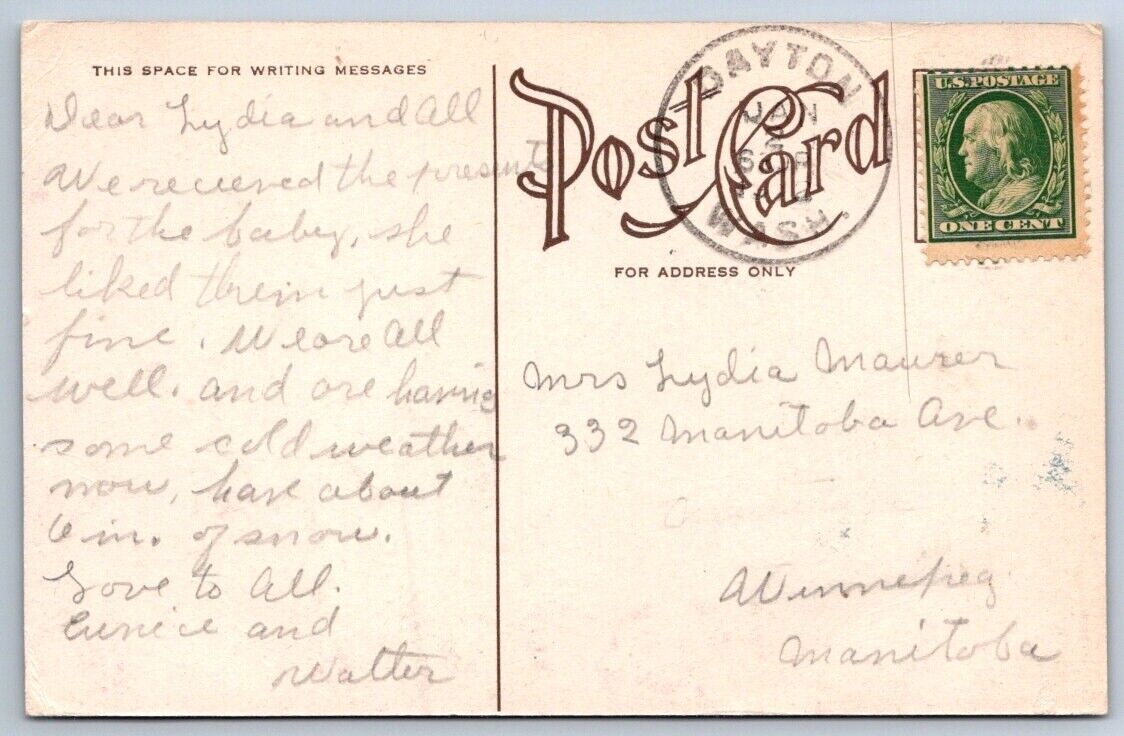 THIS SPACE FOR WRITING MESSAGES
Dear Lydia and All
We recieved the presents
for the baby, she
liked them just
fine. We are All
well. and are having
some cold weather
now, have about
6 in. of snow.
Love to All.
Eunice and
Walter
Post Card
FOR ADDRESS ONLY
DAYTON
JAN
WASH.
U.S. POSTAGE
ONE CENT
Mrs Lydia Maurer
332 Manitoba Ave.
Winnepeg
Manitoba